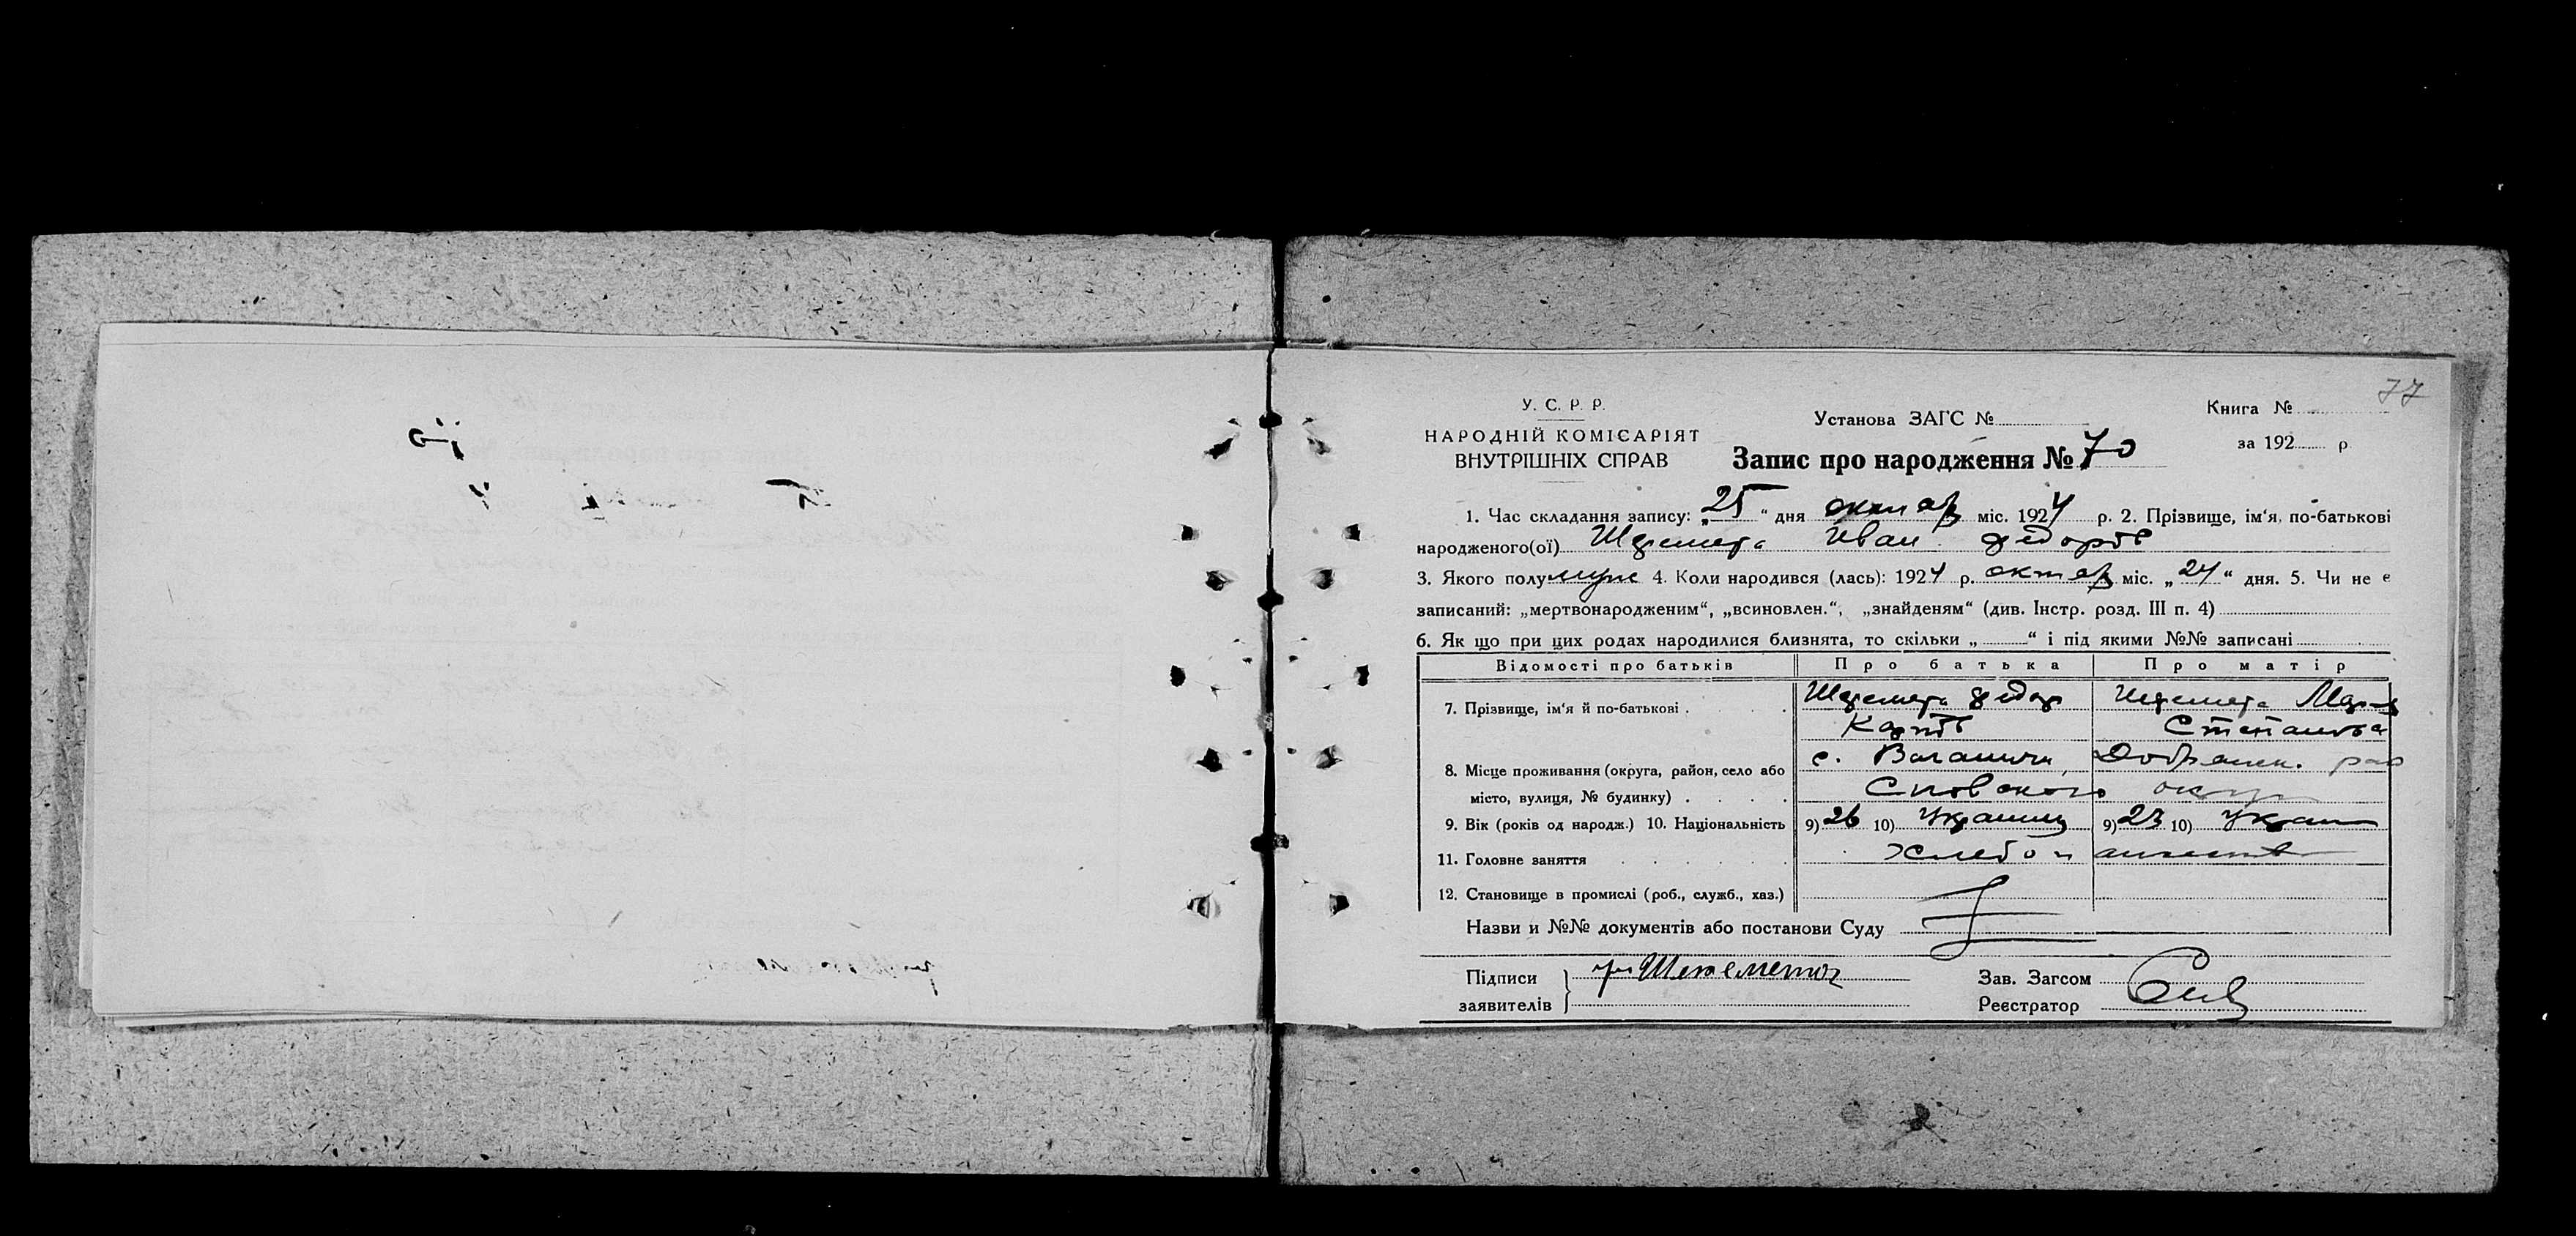 77
У. С. Р. Р.
НАРОДНІЙ КОМІСАРІЯТ
ВНУТРІШНІХ СПРАВ
Установа ЗАГС №
Книга №
за 192 р
Запис про народження № 70
1. Час складання запису: „25“ дня октяб міс. 1924 р. 2. Прізвище, ім'я, по-батькові
народженого(ої) Шеремета Иван Федоров
3. Якого полу муж 4. Коли народився (лась): 1924 р. октяб міс. „24“ дня. 5. Чи не є
записаний: „мертвонародженим“, „всиновлен.“, „знайденям“ (див. Інстр. розд. III п. 4)
6. Як що при цих родах народилися близнята, то скільки „ “ і під якими №№ записані
Відомості про батьків Про батька Про матір
7. Прізвище, ім'я й по-батькові . . Шеремета Федор Шеремета Мария
Карпов Степановна
8. Місце проживання (округа, район, село або с.
місто, вулиця, № будинку) . . . . Сновского округ
9. Вік (років од народж.) 10. Національність 9) 26 10) Украинец 9) 23 10) Укра
11. Головне заняття . . . . . .
12. Становище в промислі (роб., служб., хаз.)
Назви и №№ документів або постанови Суду
Підписи Шеремета Зав. Загсом
заявителів Реєстратор